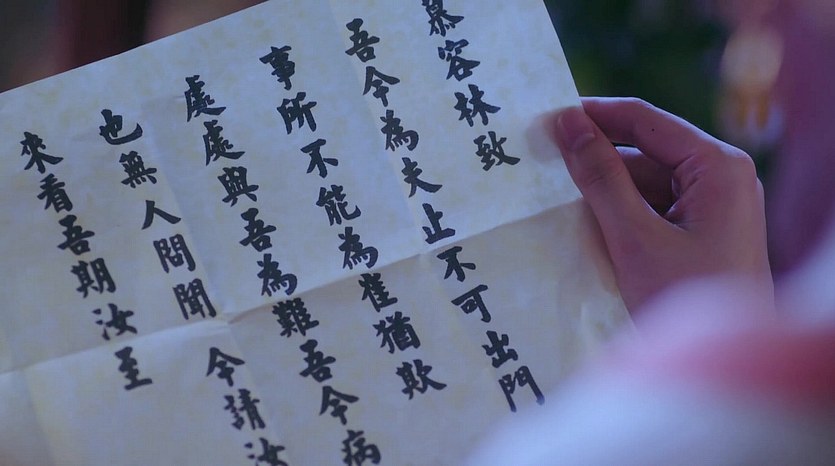 慕容林致
吾今為夫止不可出門
事所不能為崔猶欺
處處與吾為難吾今病
也無人問聞今請汝
來看吾期汝至